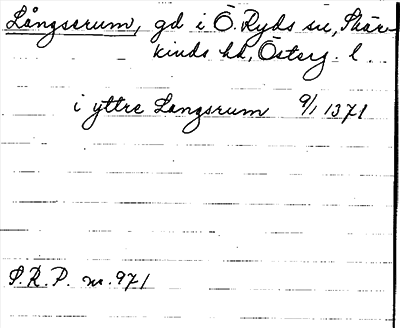 Långsrum, gd i Ö. Ryds sn, Skär-
kinds hd, Österg. l.
i yttre Langsrum 9/1 1371
S.R.P. nr. 971